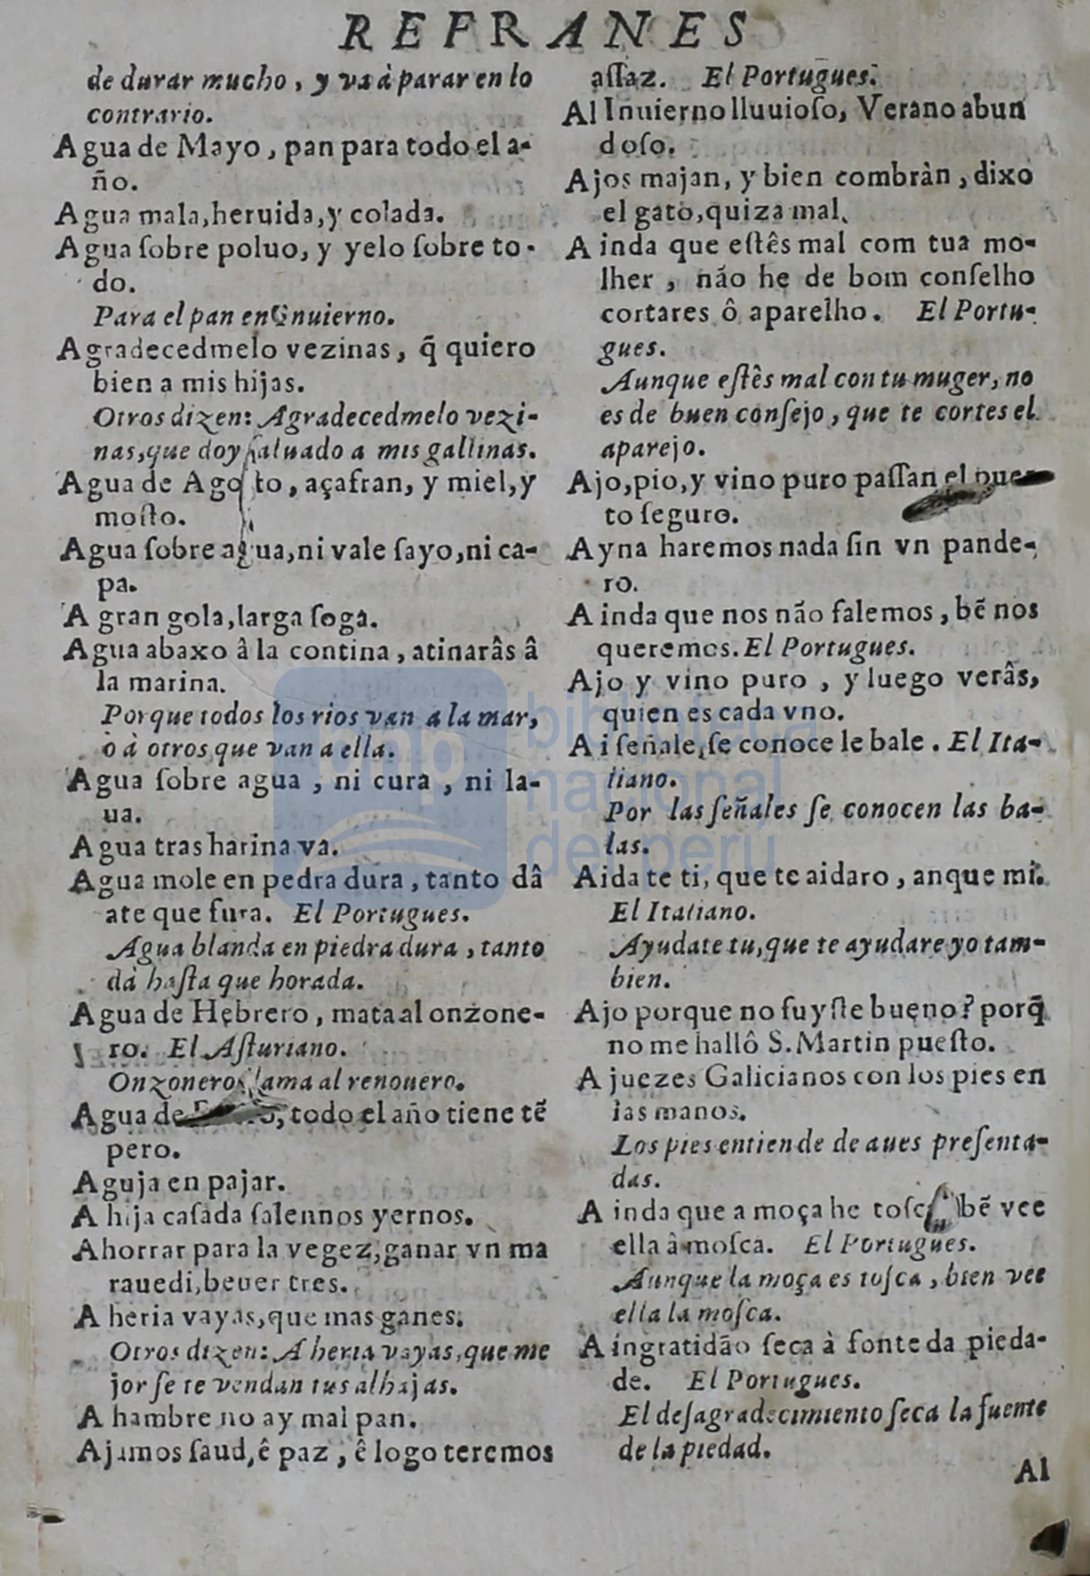 REFRANES
de durar mucho, y va à parar en lo
contrario.
Agua de Mayo, pan para todo el a-
ño.
Agua mala, heruida, y colada.
Agua ſobre poluo, y yelo ſobre to-
do.
Para el pan en Inuierno.
Agradecedmelo vezinas, q̃ quiero
bien a mis hijas.
Otros dizen: Agradecedmelo vezi-
nas, que doy ſaluado a mis gallinas.
Agua de Agoſto, açafran, y miel, y
moſto.
Agua ſobre agua, ni vale ſayo, ni ca-
pa.
A gran gola, larga ſoga.
Agua abaxo â la contina, atinarâs â
la marina.
Porque todos los rios van a la mar,
o à otros que van a ella.
Agua ſobre agua, ni cura, ni la-
ua.
Agua tras harina va.
Agua mole en pedra dura, tanto dâ
ate que fura. El Portugues.
Agua blanda en piedra dura, tanto
dà haſta que horada.
Agua de Hebrero, mata al onzone-
ro. El Aſturiano.
Onzonero llama al renouero.
Agua de todo el año tiene tẽ
pero.
Aguja en pajar.
A hija caſada ſalennos yernos.
Ahorrar para la vegez, ganar vn ma
rauedi, beuer tres.
A heria vayas, que mas ganes.
Otros dizen: A heria vayas, que me
jor ſe te vendan tus alhajas.
A hambre no ay mal pan.
Ajamos ſaud, ê paz, ê logo teremos
aſſaz. El Portugues.
Al Inuierno lluuioſo, Verano abun
doſo.
Ajos majan, y bien combràn, dixo
el gato, quiza mal.
A inda que eſtês mal com tua mo-
lher, não he de bom conſelho
cortares ô aparelho. El Portu-
gues.
Aunque eſtês mal con tu muger, no
es de buen conſejo, que te cortes el
aparejo.
Ajo, pio, y vino puro paſſan el puer-
to ſeguro.
Ayna haremos nada ſin vn pande-
ro.
A inda que nos não falemos, bẽ nos
queremos. El Portugues.
Ajo y vino puro, y luego verâs,
quien es cada vno.
A i ſeñale, ſe conoce le bale. El Ita-
liano.
Por las ſeñales ſe conocen las ba-
las.
Aida te ti, que te aidaro, anque mi.
El Italiano.
Ayudate tu, que te ayudare yo tam-
bien.
Ajo porque no fuyſte bueno? porq̃
no me hallô S. Martin pueſto.
A juezes Galicianos con los pies en
las manos.
Los pies entiende de aues preſenta-
das.
A inda que a moça he toſca, bẽ vee
ella â moſca. El Portugues.
Aunque la moça es toſca, bien vee
ella la moſca.
A ingratidão ſeca à fonte da pieda-
de. El Portugues.
El deſagradecimiento ſeca la fuente
de la piedad.
Al
bnp
biblioteca
nacional
del perú